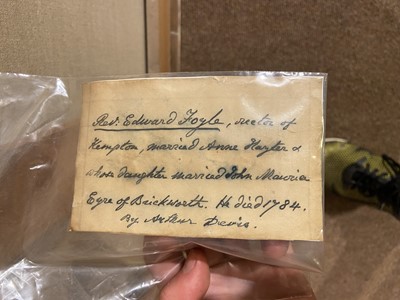 Revd. Edward Foyle, rector of
Kimpton, married Anne Hayter &
whose daughter married John Maurice
Eyre of Brickworth. He died 1784.
By Arthur Devis.